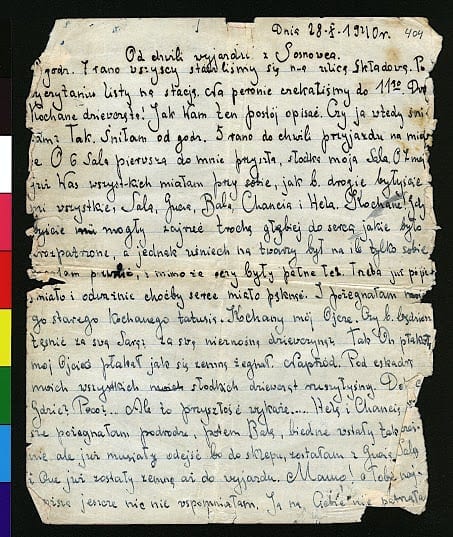 Dnia 28-X-1940r. 404
Od chwili wyjazdu z Sosnowca.
godz. 7 rano wszyscy stawiliśmy się na ulicę Składową. Po
czytaniu listy na stację. Na peronie czekaliśmy do 11
Kochane dziewczęta! Jak Wam ten postój opisać. Czy ja wtedy śni
łam? Tak. Śniłam od godz. 5 rano do chwili przyjazdu na miejs
je O 6 Sala pierwsza do mnie przyszła, słodka moja Sala.
już Was wszystkich miałam przy sobie, jak b. drogie byłyście
mi wszystkie, Sala, Gucia, Bala, Chancia i Hela. Kochane! Gdy
byście mi mogły zajrzeć trochę głębiej do serca jakie było
rozpaczone, a jednak uśmiech na twarzy był na ile tylko sobie
i mimo że oczy były pełne łez. Trzeba już
śmiało i odważnie choćby serce miało pęknąć. I pożegnałam
go starego kochanego tatusia. Kochany mój Ojcze. Czy b. będziesz
tęsnić za swą Sarą? Za swą nieznośną dziewczyną? Tak On płakał
mój Ojciec płakał jak się zemną żegnał. Naprzód. Pod eskadrą
moich wszystkich moich słodkich dziewcząt ruszyłyśmy.
Gdzie? Poco?... Ale to przyszłość wykaże.... Helę i Chancię,
sze pożegnałam podrodze, potem Balę, biedne wstały tak
nie ale już musiały odejść bo do sklepu, zostałam z Gucią, Salą
i One już zostały zemną aż do wyjazdu. Mamo! o Tobie naj-
jeszcze nic nie wspomniałam. Ja na Ciebie nie patrzała